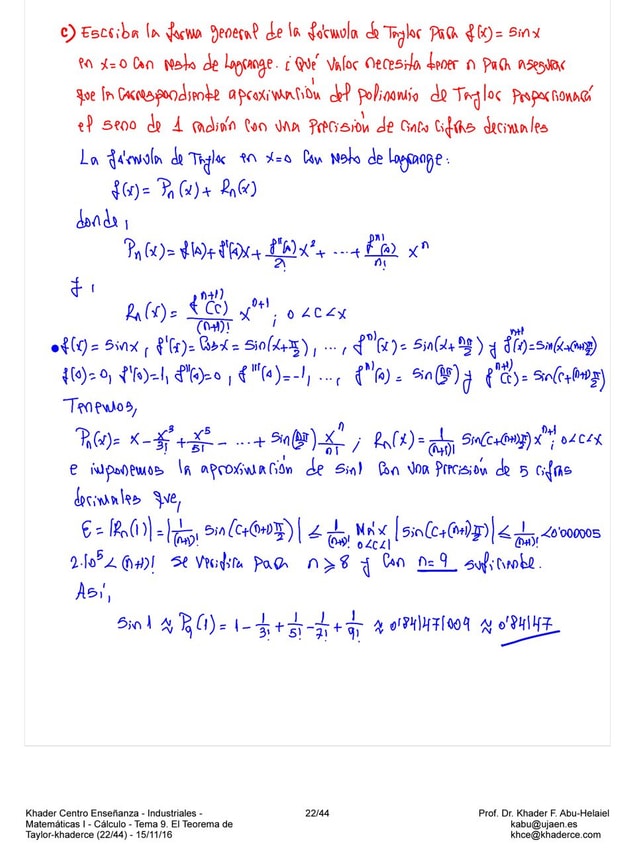 c) Escriba la forma general de la fórmula de Taylor para f(x) = sin x
en x=0 con resto de Lagrange. ¿Qué valor necesita tener n para asegurar
que la correspondiente aproximación del polinomio de Taylor proporcionará
el seno de 1 radián con una precisión de cinco cifras decimales
La fórmula de Taylor en x=0 con resto de Lagrange:
f(x) = Pn(x) + Rn(x)
donde,
Pn(x) = f(0) + f'(0)x + f''(0)/2! x² + ... + fⁿ⁾(0)/n! xⁿ
y,
Rn(x) = fⁿ⁺¹⁾(c)/(n+1)! xⁿ⁺¹ ; 0<c<x
• f(x) = sin x, f'(x) = cos x = sin(x+π/2), ..., fⁿ⁾(x) = sin(x+nπ/2) y fⁿ⁺¹⁾(x) = sin(x+(n+1)π/2)
f(0)=0, f'(0)=1, f''(0)=0, f'''(0)=-1, ..., fⁿ⁾(0) = sin(nπ/2) y fⁿ⁺¹⁾(c) = sin(c+(n+1)π/2)
Tenemos,
Pn(x) = x - x³/3! + x⁵/5! - ... + sin(nπ/2) xⁿ/n! ; Rn(x) = 1/(n+1)! sin(c+(n+1)π/2) xⁿ⁺¹ ; 0<c<x
e imponemos la aproximación de sin1 con una precisión de 5 cifras
decimales que,
E = |Rn(1)| = |1/(n+1)! sin(c+(n+1)π/2)| ≤ 1/(n+1)! Máx 0<c<1 |sin(c+(n+1)π/2)| ≤ 1/(n+1)! < 0'000005
2·10⁵ < (n+1)! se verifica para n ≥ 8 y con n = 9 suficiente.
Así,
sin 1 ≈ P9(1) = 1 - 1/3! + 1/5! - 1/7! + 1/9! ≈ 0'841471009 ≈ 0'84147
Khader Centro Enseñanza - Industriales -
Matemáticas I - Cálculo - Tema 9. El Teorema de
Taylor-khaderce (22/44) - 15/11/16
22/44
Prof. Dr. Khader F. Abu-Helaiel
kabu@ujaen.es
khce@khaderce.com